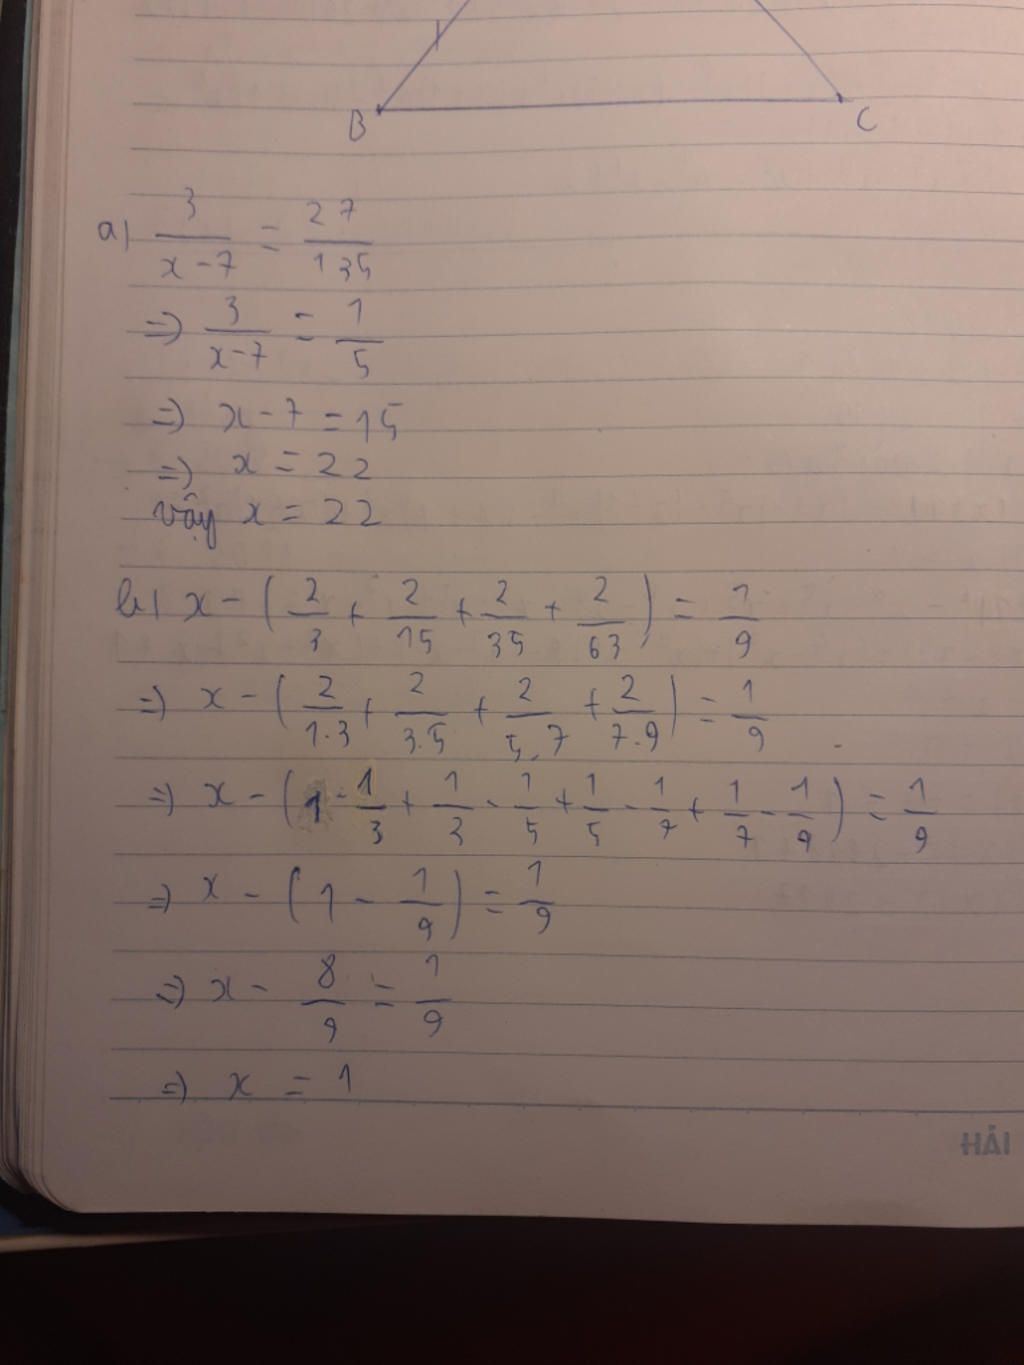 B C
a) 3/(x-7) = 27/135
=> 3/(x-7) = 1/5
=> x - 7 = 15
=> x = 22
vậy x = 22
b) x - (2/3 + 2/15 + 2/35 + 2/63) = 1/9
=> x - (2/1.3 + 2/3.5 + 2/5.7 + 2/7.9) = 1/9
=> x - (1 - 1/3 + 1/3 - 1/5 + 1/5 - 1/7 + 1/7 - 1/9) = 1/9
=> x - (1 - 1/9) = 1/9
=> x - 8/9 = 1/9
=> x = 1
HẢI